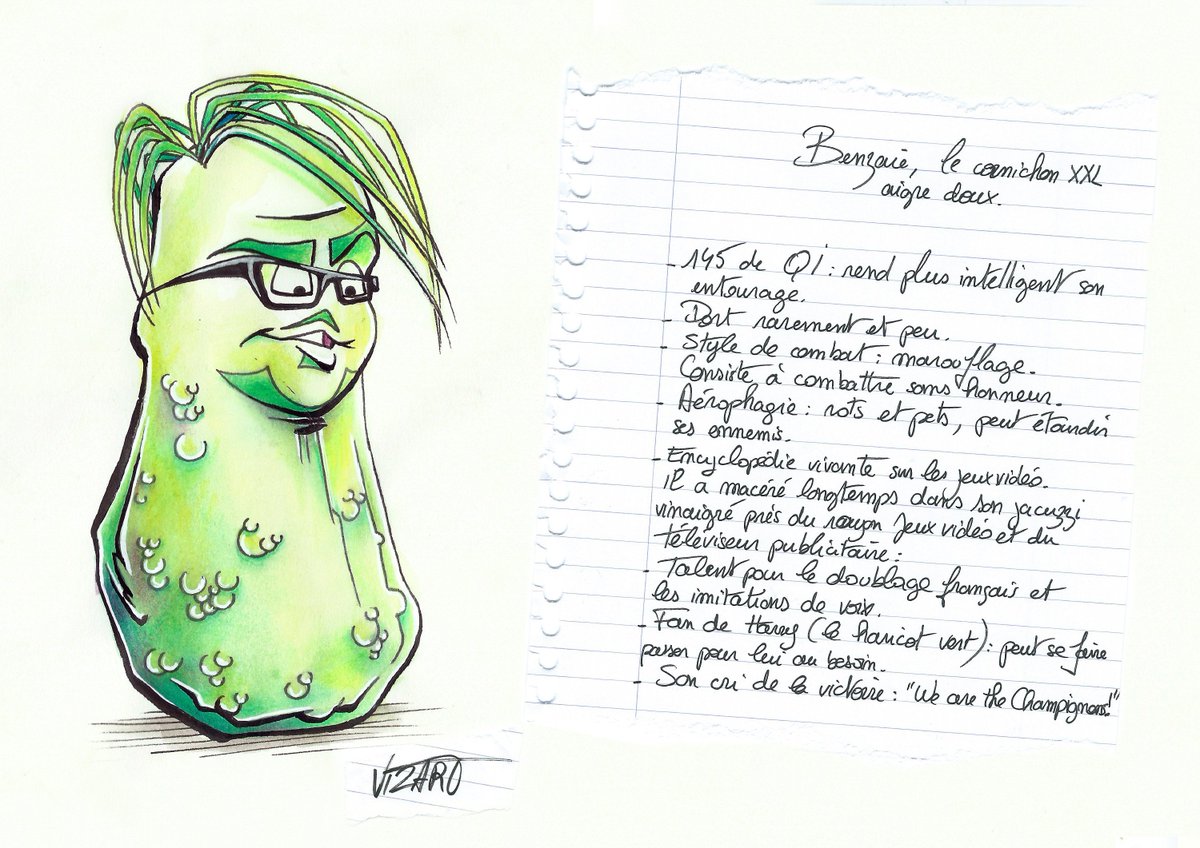 Benzaie, le cornichon XXL
aigre doux.
- 145 de QI : rend plus intelligent son
entourage.
- Dort rarement et peu.
- Style de combat : marouflage.
Consiste à combattre sans honneur.
- Aérophagie : rots et pets, peut étourdir
ses ennemis.
- Encyclopédie vivante sur les jeux vidéo.
il a macéré longtemps dans son jacuzzi
vinaigré près du rayon Jeux vidéo et du
téléviseur publicitaire :
- Talent pour le doublage français et
les imitations de voix.
- Fan de Harry (le haricot vert) : peut se faire
passer pour lui au besoin.
- Son cri de la victoire : "We are the Champignons!"
VIZARO